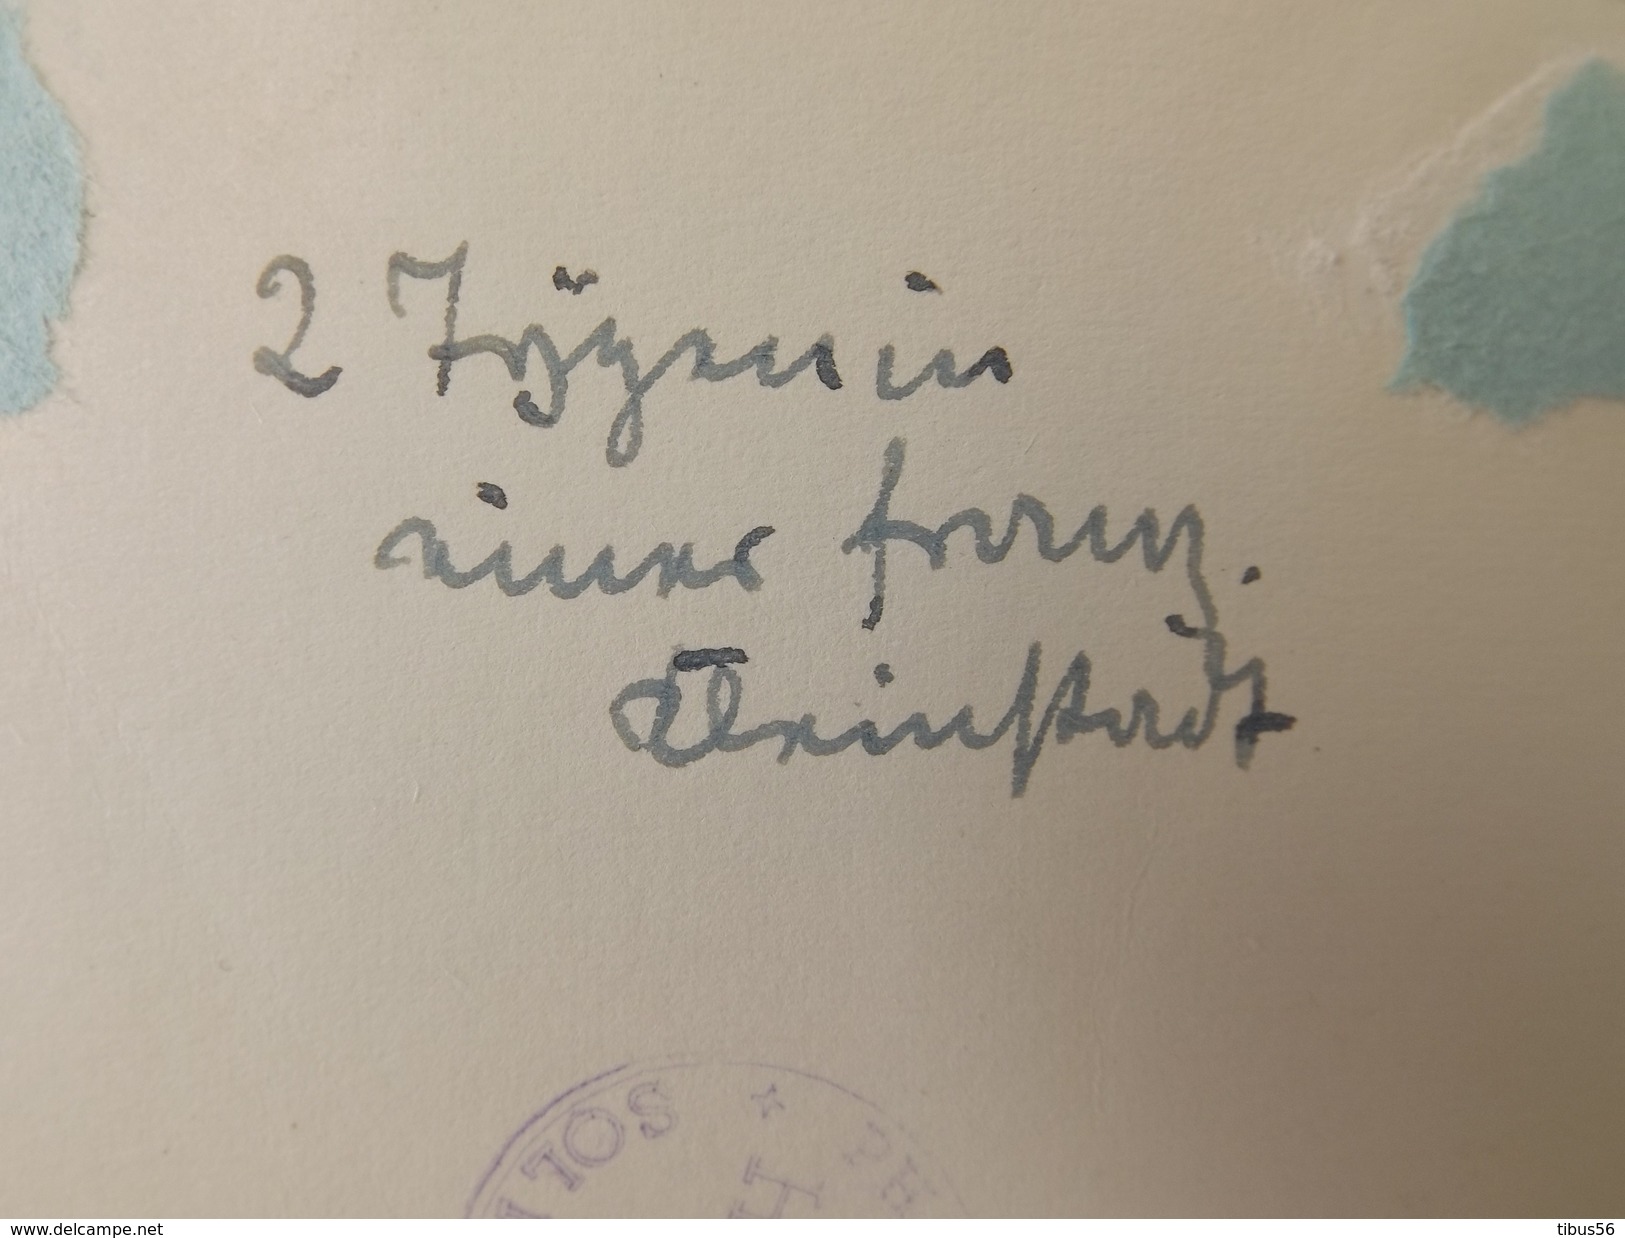 2 Typen in
einer franz.
Kleinstadt
SOLI
www.delcampe.net
tibus56